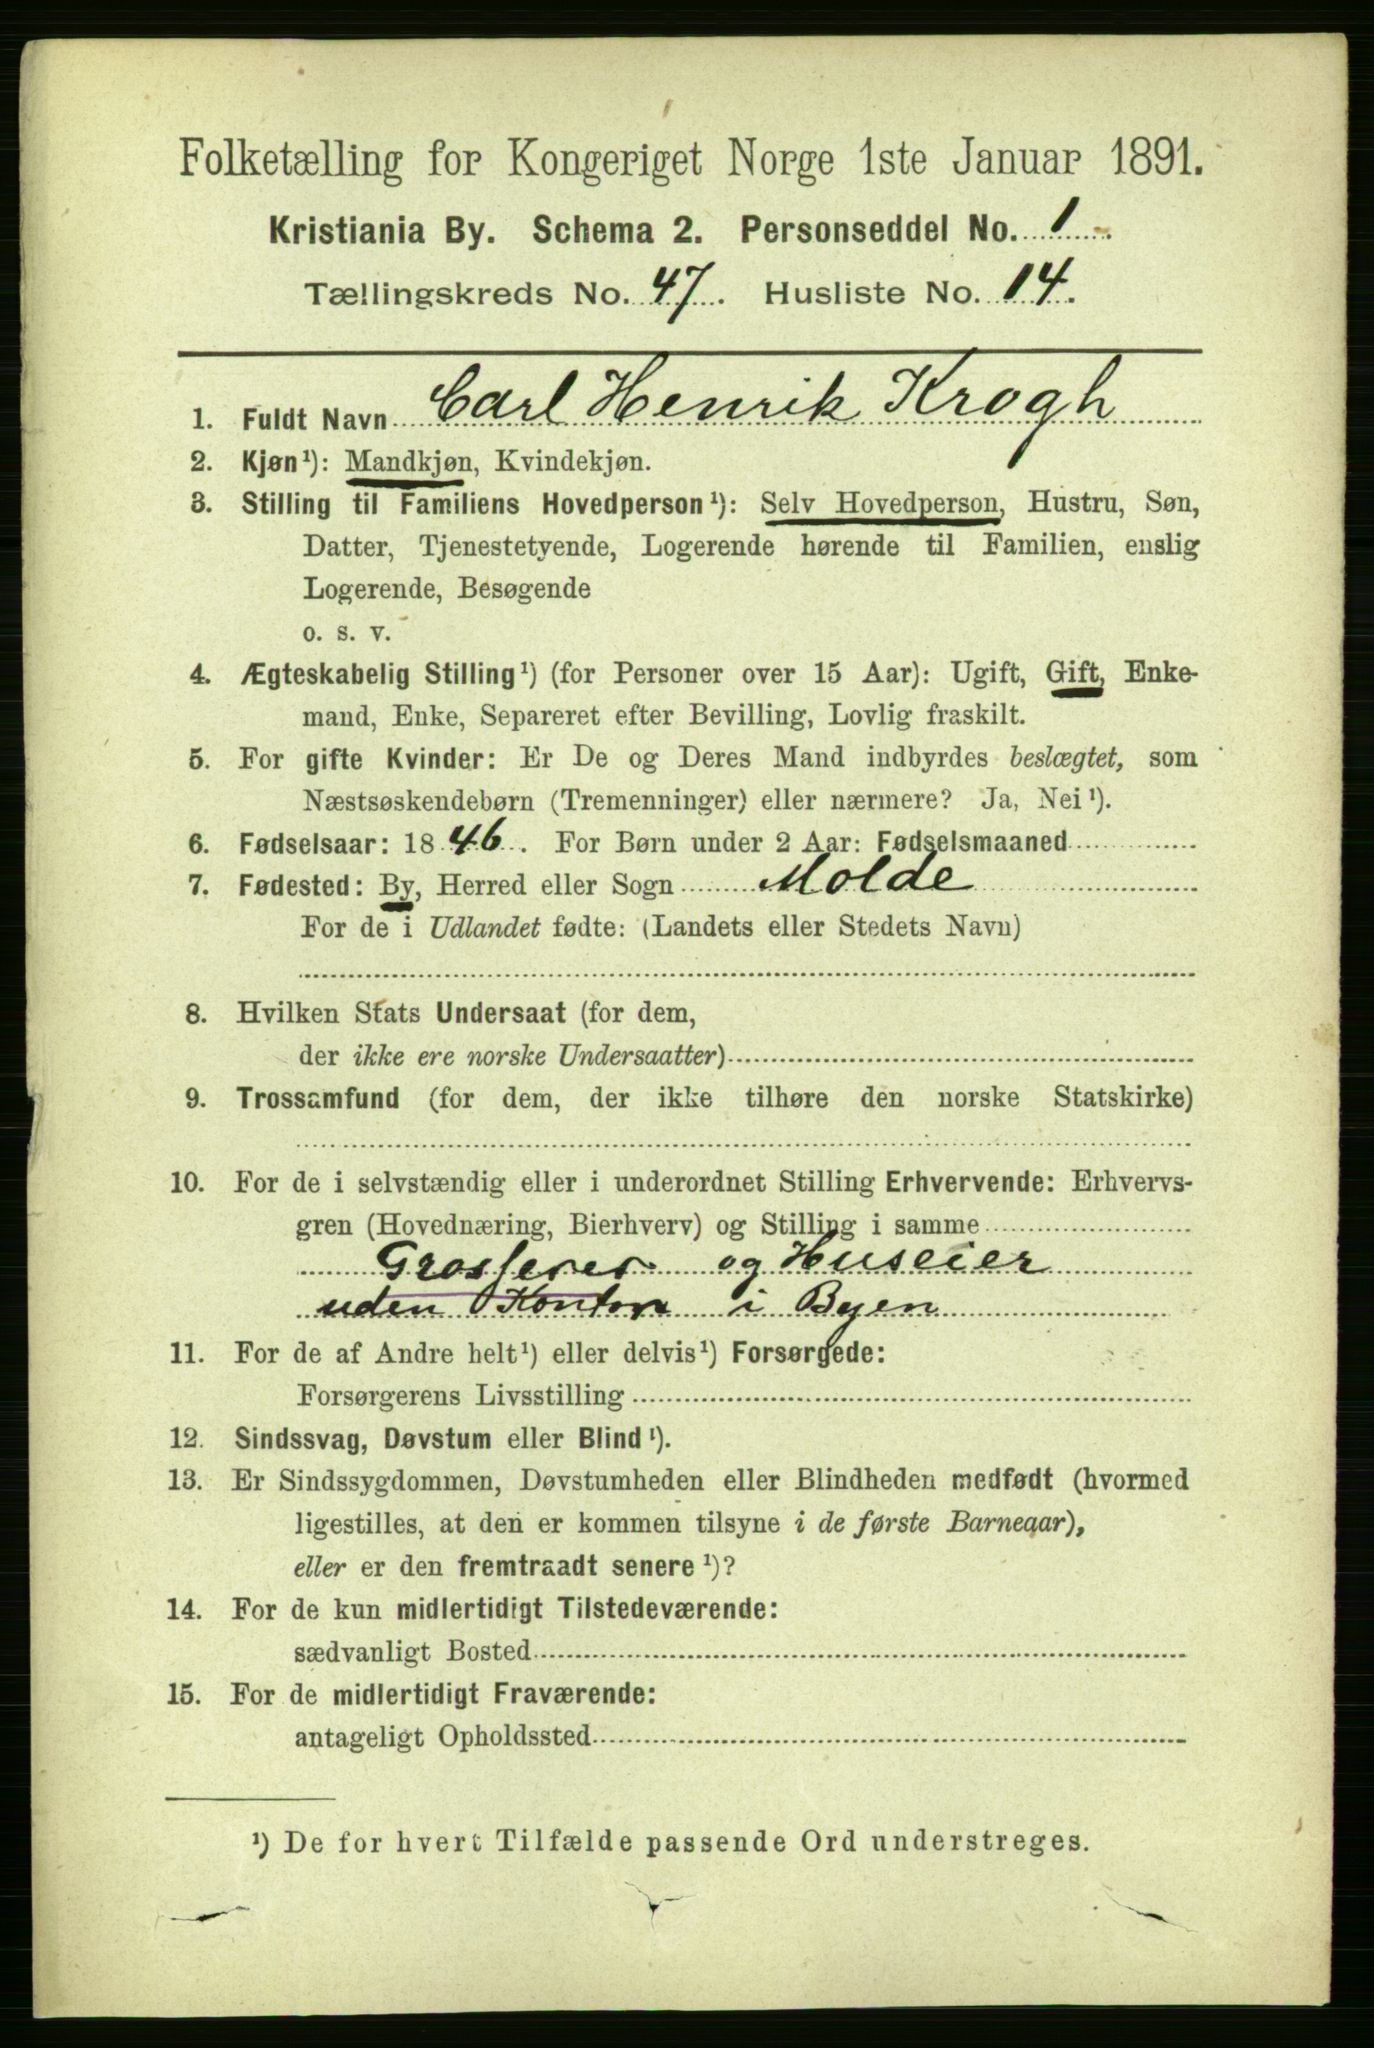 Folketælling for Kongeriget Norge 1ste Januar 1891.
Kristiania By. Schema 2. Personseddel No. 1.
Tællingskreds No. 47. Husliste No. 14.
1. Fuldt Navn Carl Henrik Krogh
2. Kjøn¹): Mandkjøn, Kvindekjøn.
3. Stilling til Familiens Hovedperson¹): Selv Hovedperson, Hustru, Søn,
Datter, Tjenestetyende, Logerende hørende til Familien, enslig
Logerende, Besøgende
o. s. v.
4. Ægteskabelig Stilling¹) (for Personer over 15 Aar): Ugift, Gift, Enke-
mand, Enke, Separeret efter Bevilling, Lovlig fraskilt.
5. For gifte Kvinder: Er De og Deres Mand indbyrdes beslægtet, som
Næstsøskendebørn (Tremenninger) eller nærmere? Ja, Nei¹).
6. Fødselsaar: 1846. For Børn under 2 Aar: Fødselsmaaned
7. Fødested: By, Herred eller Sogn Molde
For de i Udlandet fødte: (Landets eller Stedets Navn)
8. Hvilken Stats Undersaat (for dem,
der ikke ere norske Undersaatter)
9. Trossamfund (for dem, der ikke tilhøre den norske Statskirke)
10. For de i selvstændig eller i underordnet Stilling Erhvervende: Erhvervs-
gren (Hovednæring, Bierhverv) og Stilling i samme
Grosserer og Huseier
uden Kontor i Byen
11. For de af Andre helt¹) eller delvis¹) Forsørgede:
Forsørgerens Livsstilling
12. Sindssvag, Døvstum eller Blind¹).
13. Er Sindssygdommen, Døvstumheden eller Blindheden medfødt (hvormed
ligestilles, at den er kommen tilsyne i de første Barneaar),
eller er den fremtraadt senere¹)?
14. For de kun midlertidigt Tilstedeværende:
sædvanligt Bosted
15. For de midlertidigt Fraværende:
antageligt Opholdssted
¹) De for hvert Tilfælde passende Ord understreges.